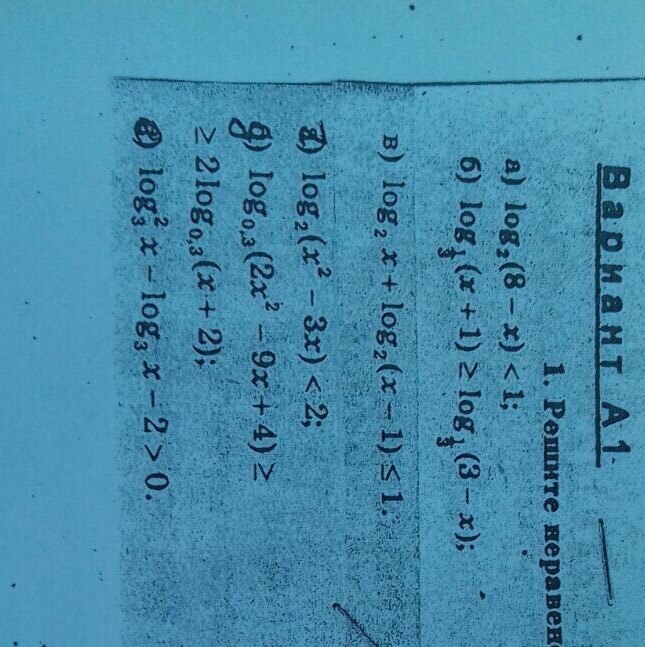 Вариант А1
1. Решите неравен
а) log₂(8 − x) < 1;
б) log_{1/3}(x + 1) ≥ log_{1/3}(3 − x);
в) log₂ x + log₂(x − 1) ≤ 1.
г) log₂(x² − 3x) < 2;
д) log₀,₃(2x² − 9x + 4) ≥
≥ 2log₀,₃(x + 2);
е) log₃² x − log₃ x − 2 > 0.